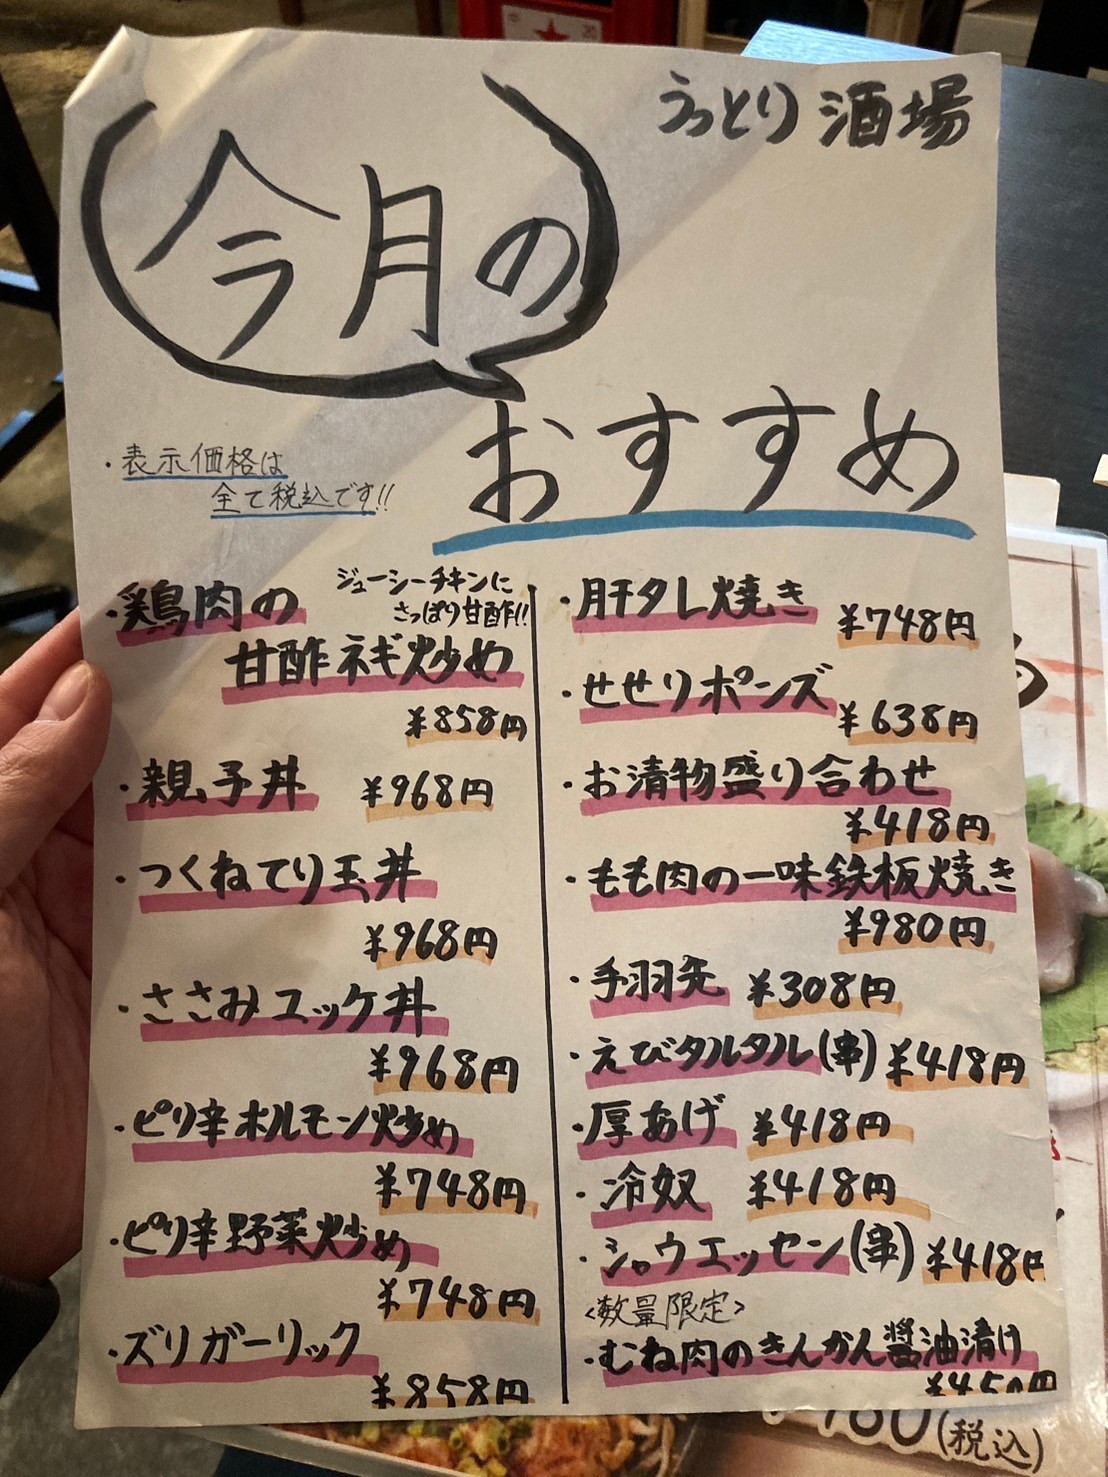 うっとり酒場
今月の
おすすめ
・表示価格は
全て税込です!!
・鶏肉の
ジューシーチキンに
さっぱり甘酢!!
甘酢ネギ炒め
¥858円
・親子丼 ¥968円
・つくねてり玉丼
¥968円
・ささみユッケ丼
¥968円
・ピリ辛ホルモン炒め
¥748円
・ピリ辛野菜炒め
¥748円
・ズリガーリック
¥858円
・肝タレ焼き
¥748円
・せせりポンズ
¥638円
・お漬物盛り合わせ
¥418円
・もも肉の一味鉄板焼き
¥980円
・手羽先 ¥308円
・えびタルタル(串) ¥418円
・厚あげ ¥418円
・冷奴 ¥418円
・シャウエッセン(串) ¥418円
<数量限定>
・むね肉のきんかん醤油漬け
¥450円
(税込)